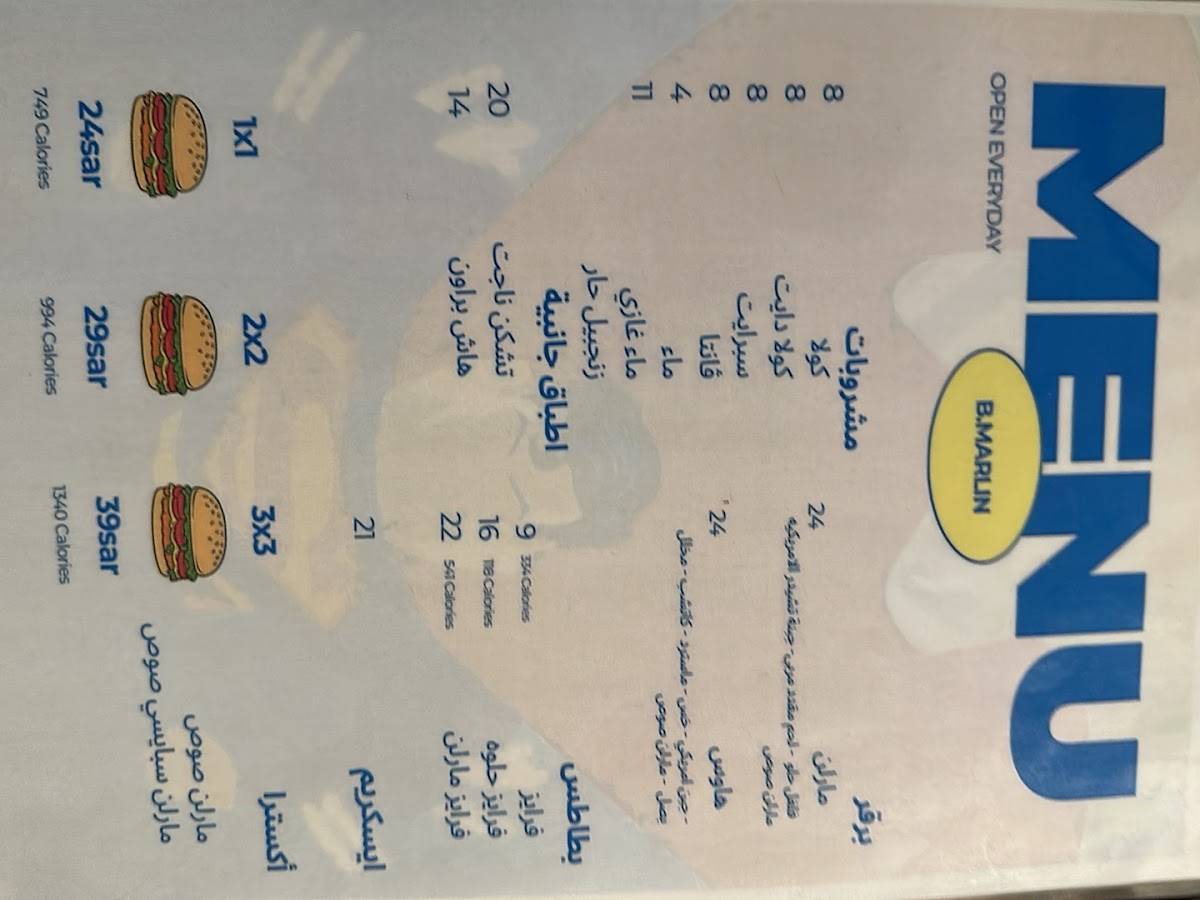 MENU
OPEN EVERYDAY
B.MARLIN
برقر
مارلن 24
فلفل حلو - لحم مقدد مربى - جبنة تشيدر الامريكيه
مارلن صوص
هاوس 24
- جبن امريكي - خس - ماسترد - كاتشب - مخلل
بصل - مارلن صوص
بطاطس
فرايز 9 334 Calories
فرايز حلوه 16 118 Calories
فرايز مارلن 22 541 Calories
ايسكريم 21
أكسترا
مارلن صوص
مارلن سبايسي صوص
مشروبات
كولا 8
كولا دايت 8
سبرايت 8
ڤانتا 8
ماء 4
ماء غازي 11
زنجبيل حار
اطباق جانبية
تشكن ناجت 20
هاش براون 14
1x1
24sar
749 Calories
2x2
29sar
994 Calories
3x3
39sar
1340 Calories